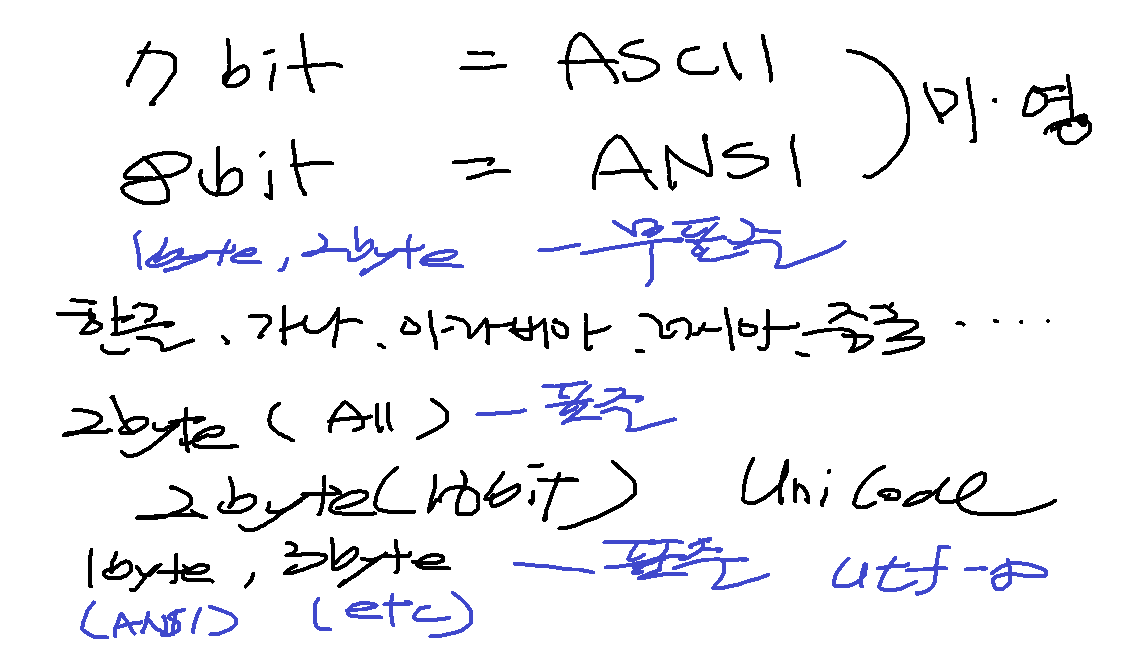 7 bit = ASCII
8bit = ANSI ) 미·영
1byte, 2byte — 무표준
한글, 가나, 아라비아, 러시아, 중국 .....
2byte (All) — 표준
2byte(16bit) UniCode
1byte, 3byte — 표준 utf-8
(ANSI) (etc)